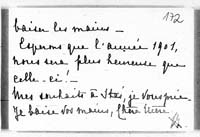 172
baiser les mains —
Espérons que l'année 1901,
nous sera plus heureuse que
celle-ci! —
Mes souhaits à Stas, je vous prie.
Je baise vos mains, chère